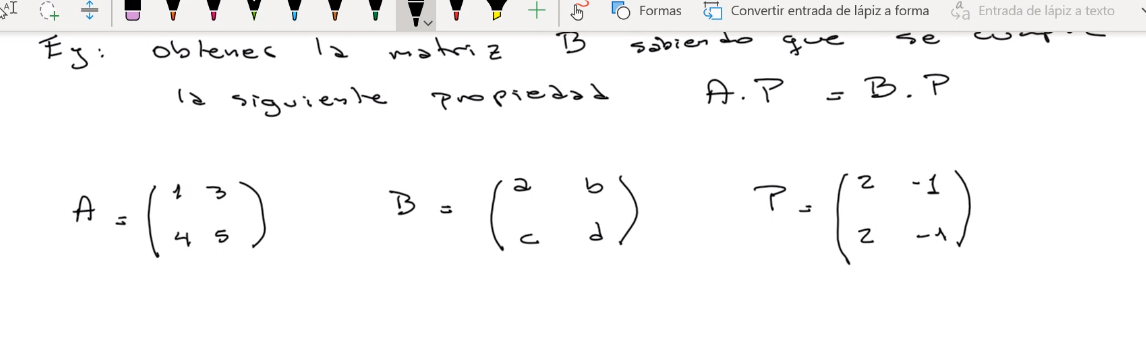 Formas Convertir entrada de lápiz a forma Entrada de lápiz a texto
Ej: obtener la matriz B sabiendo que se
la siguiente propiedad A.P = B.P
A = (1 3 B = (a b P = (2 -1
4 5) c d) 2 -1)